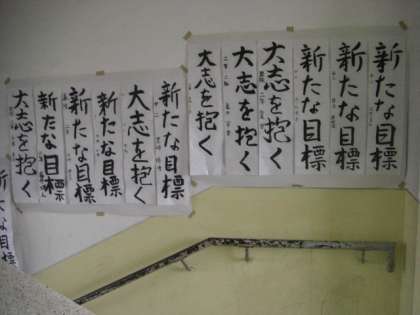 新たな目標
新たな目標
新たな目標
大志を抱く
大志を抱く
大志を抱く
新たな目標
大志を抱く
新たな目標
新たな目標
新たな目標
大志を抱く
新たな目標